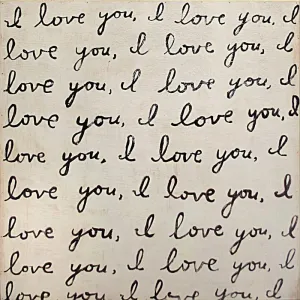 I love you, I love you, I
love you, I love you, I
love you, I love you, I
love you, I love you, I
love you, I love you, I
love you, I love you, I
love you, I love you, I
love you, I love you, I
love you, I love you, I